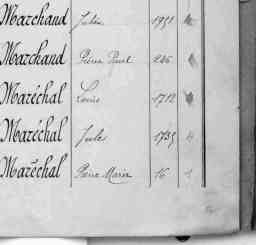 Marchand Jules 1951
Marchand Pierre Paul 246
Maréchal Louis 1712
Maréchal Jules 1735 4
Maréchal Pierre Marie 16 1